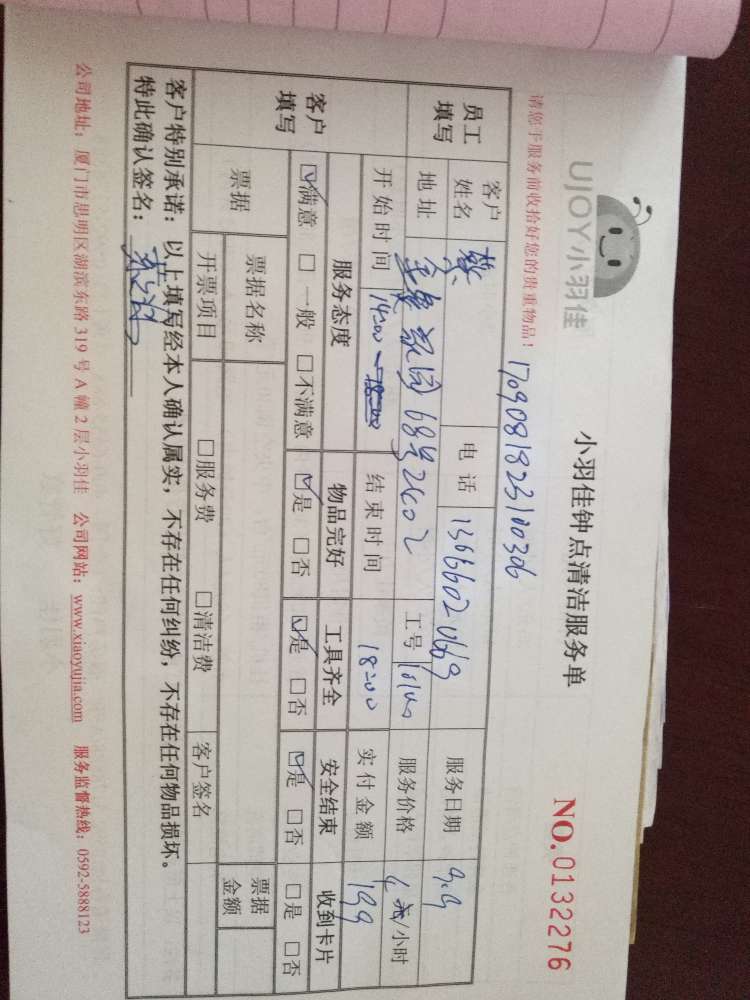 UJOY小羽佳
小羽佳钟点清洁服务单
NO.0132276
请您于服务前收拾好您的贵重物品！
1709081823100306
员工填写 客户姓名 蔡 电话 服务日期 9.9
地址 68号2602 工号 服务价格 元/小时
开始时间 14:00 结束时间 18:00 实付金额 199
客户填写 服务态度 物品完好 工具齐全 安全结束 收到卡片
☑满意 □一般 □不满意 ☑是 □否 ☑是 □否 ☑是 □否 □是 □否
票据 票据名称 票据金额
开票项目 □服务费 □清洁费 客户签名
客户特别承诺：以上填写经本人确认属实，不存在任何纠纷，不存在任何物品损坏。
特此确认签名：
公司地址：厦门市思明区湖滨东路 319 号 A 幢 2 层小羽佳 公司网站：www.xiaoyujia.com 服务监督热线：0592-5888123